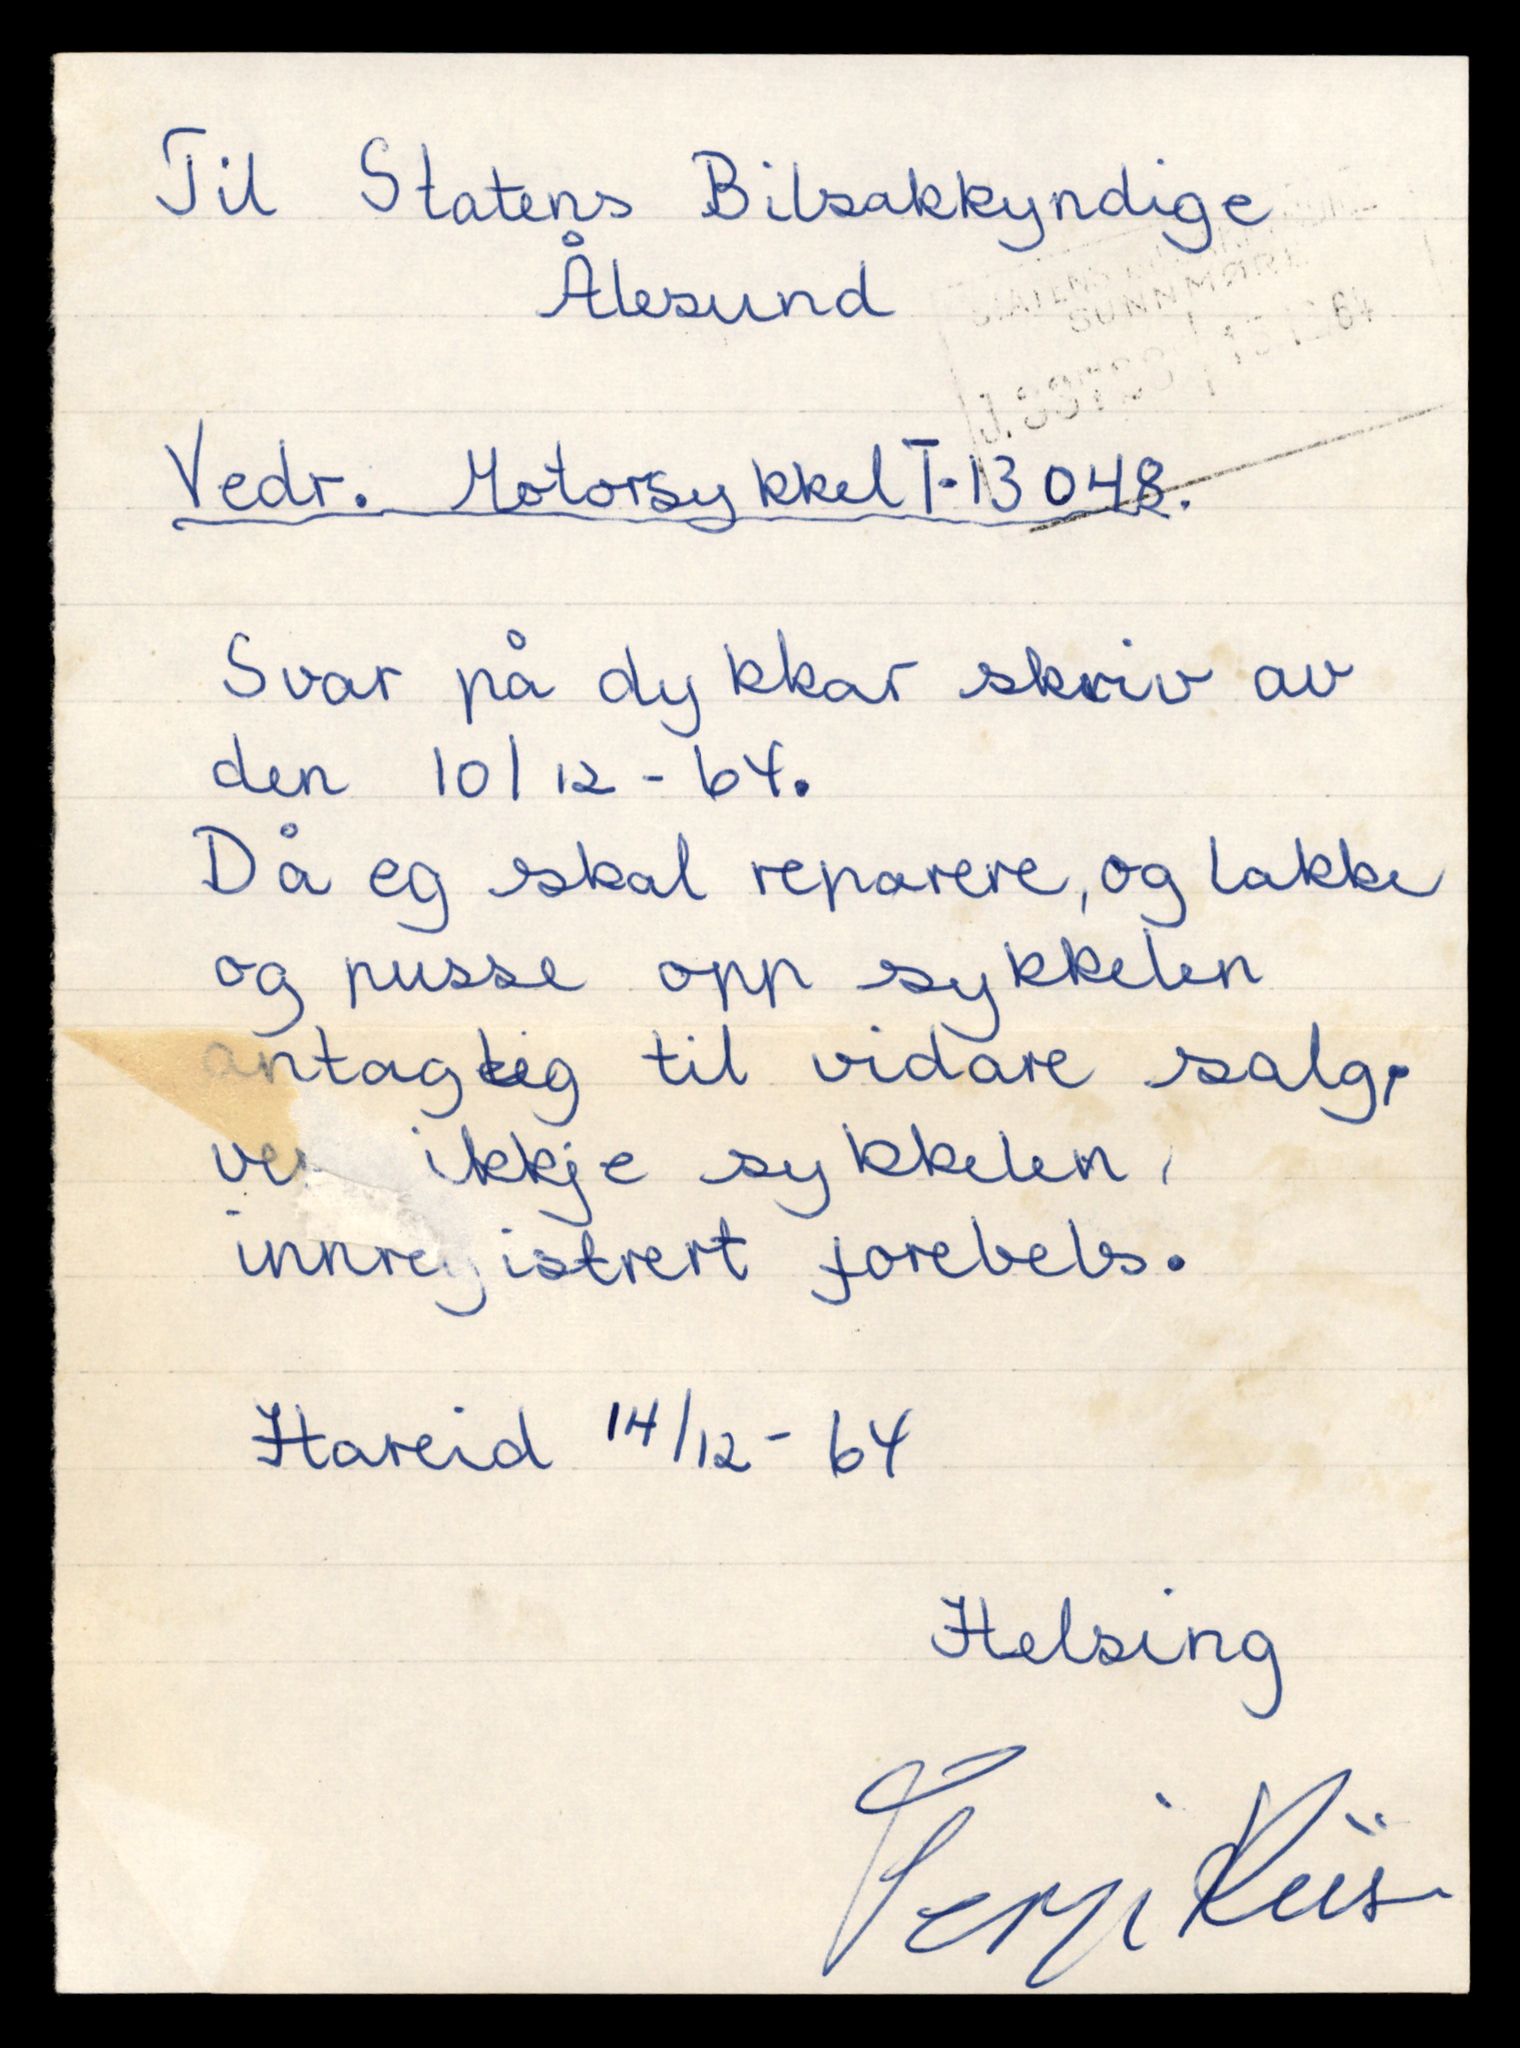 Til Statens Bilsakkyndige
Ålesund
STATENS
SUNNMØRE
J.
64
Vedr. Motorsykkel T-13048.
Svar på dykkar skriv av
den 10/12-64.
Då eg skal reparere, og lakke
og pusse opp sykkelen
antagleg til vidare salg,
ver ikkje sykkelen,
innregistrert forebels.
Hareid 14/12-64
Helsing
Riis